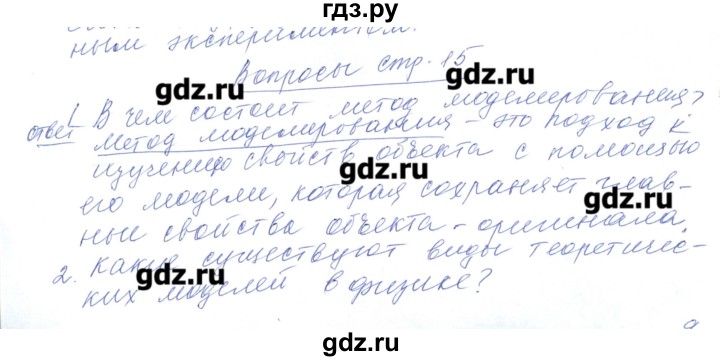 гдз.ру
ным экспериментом.
Вопросы стр. 15
gdz.ru gdz.ru
1. В чем состоит метод моделирования?
ответ Метод моделирования – это подход к
изучению свойств объекта с помощью
gdz.ru gdz.ru
его модели, которая сохраняет глав-
ные свойства объекта-оригинала.
2. Какие существуют виды теоретичес-
gdz.ru gdz.ru
ких моделей в физике?
gdz.ru